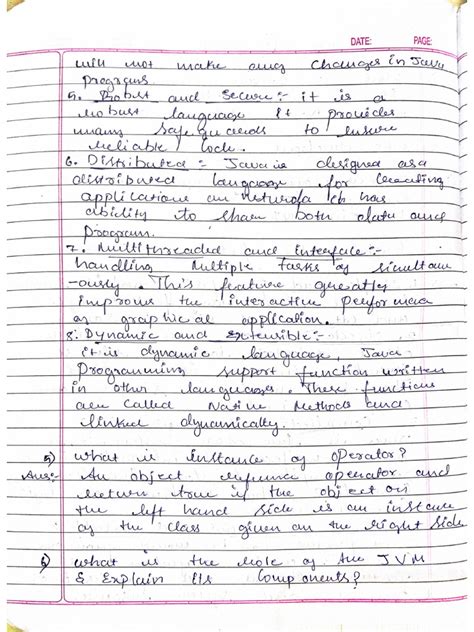 DATE: PAGE:
will not make any changes in Java
programs
5. Robust and Secure:- it is a
robust language it provides
many safe guards to ensure
reliable code.
6. Distributed = Java is designed as a
distributed language for creating
applications on has
ability to share both data and
program.
7. Multithreaded and interface:-
handling multiple tasks of simultane
-ously. This feature greatly
improves the interactive performance
of graphical application.
8. Dynamic and Extensible:-
it is dynamic language, Java
Programming support function written
in other languages. These functions
are called Native Methods and
linked dynamically.
5) what is instance of operator?
Ans:- An object refrence operator and
return true if the object on
the left hand side is an instance
of the class given on the right side
6) what is the role of the JVM
& Explain its Components?